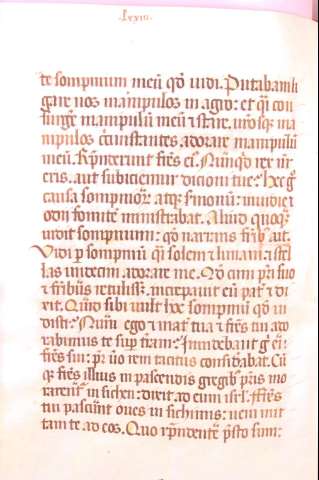 lxxiii.
te sompnium meū qđ uidi. Putabam li
gare nos manipulos in agro: et q̄i con
surgē manipulū meū ⁊ stare. urōsq; ma
nipulos cc̄unstantes. adorare manipulū
meū. Rn̄derunt fr̄es ei. Nunq̄d rex nr̄
eris. aut subiciemur dicioni tue? hec g̊
causa sompnioꝝ. atq; s̄monū: inuidie ⁊
odii fomitē ministrabat. Aliud quoq;
uidit sompnium: qđ narrans fr̄ib; ait.
Vidi p̄ sompniū q̄i solem ⁊ lunam ⁊ stel
las undecim adorare me. Qđ cum pr̄i suo
⁊ fr̄ibus retulisset. increpauit eū pat̄ ⁊ di
xit. Quid sibi uult hoc sompniū qđ ui
disti? Nūm ego ⁊ mat̄ tua ⁊ fr̄es tui ado
rabimus te sup t̄ram? Inuidebant g̊ ei
fr̄es sui: pr̄ uo rem tacitus considabat. Cū
q; fr̄es illius in pascendis gregib; pr̄is mo
rarent̄ in sichen: dixit ad eum isrl̄. Fr̄es
tui pascunt oues in sichimis: ueni mit
tam te ad eos. Quo rn̄dente p̄sto sum: